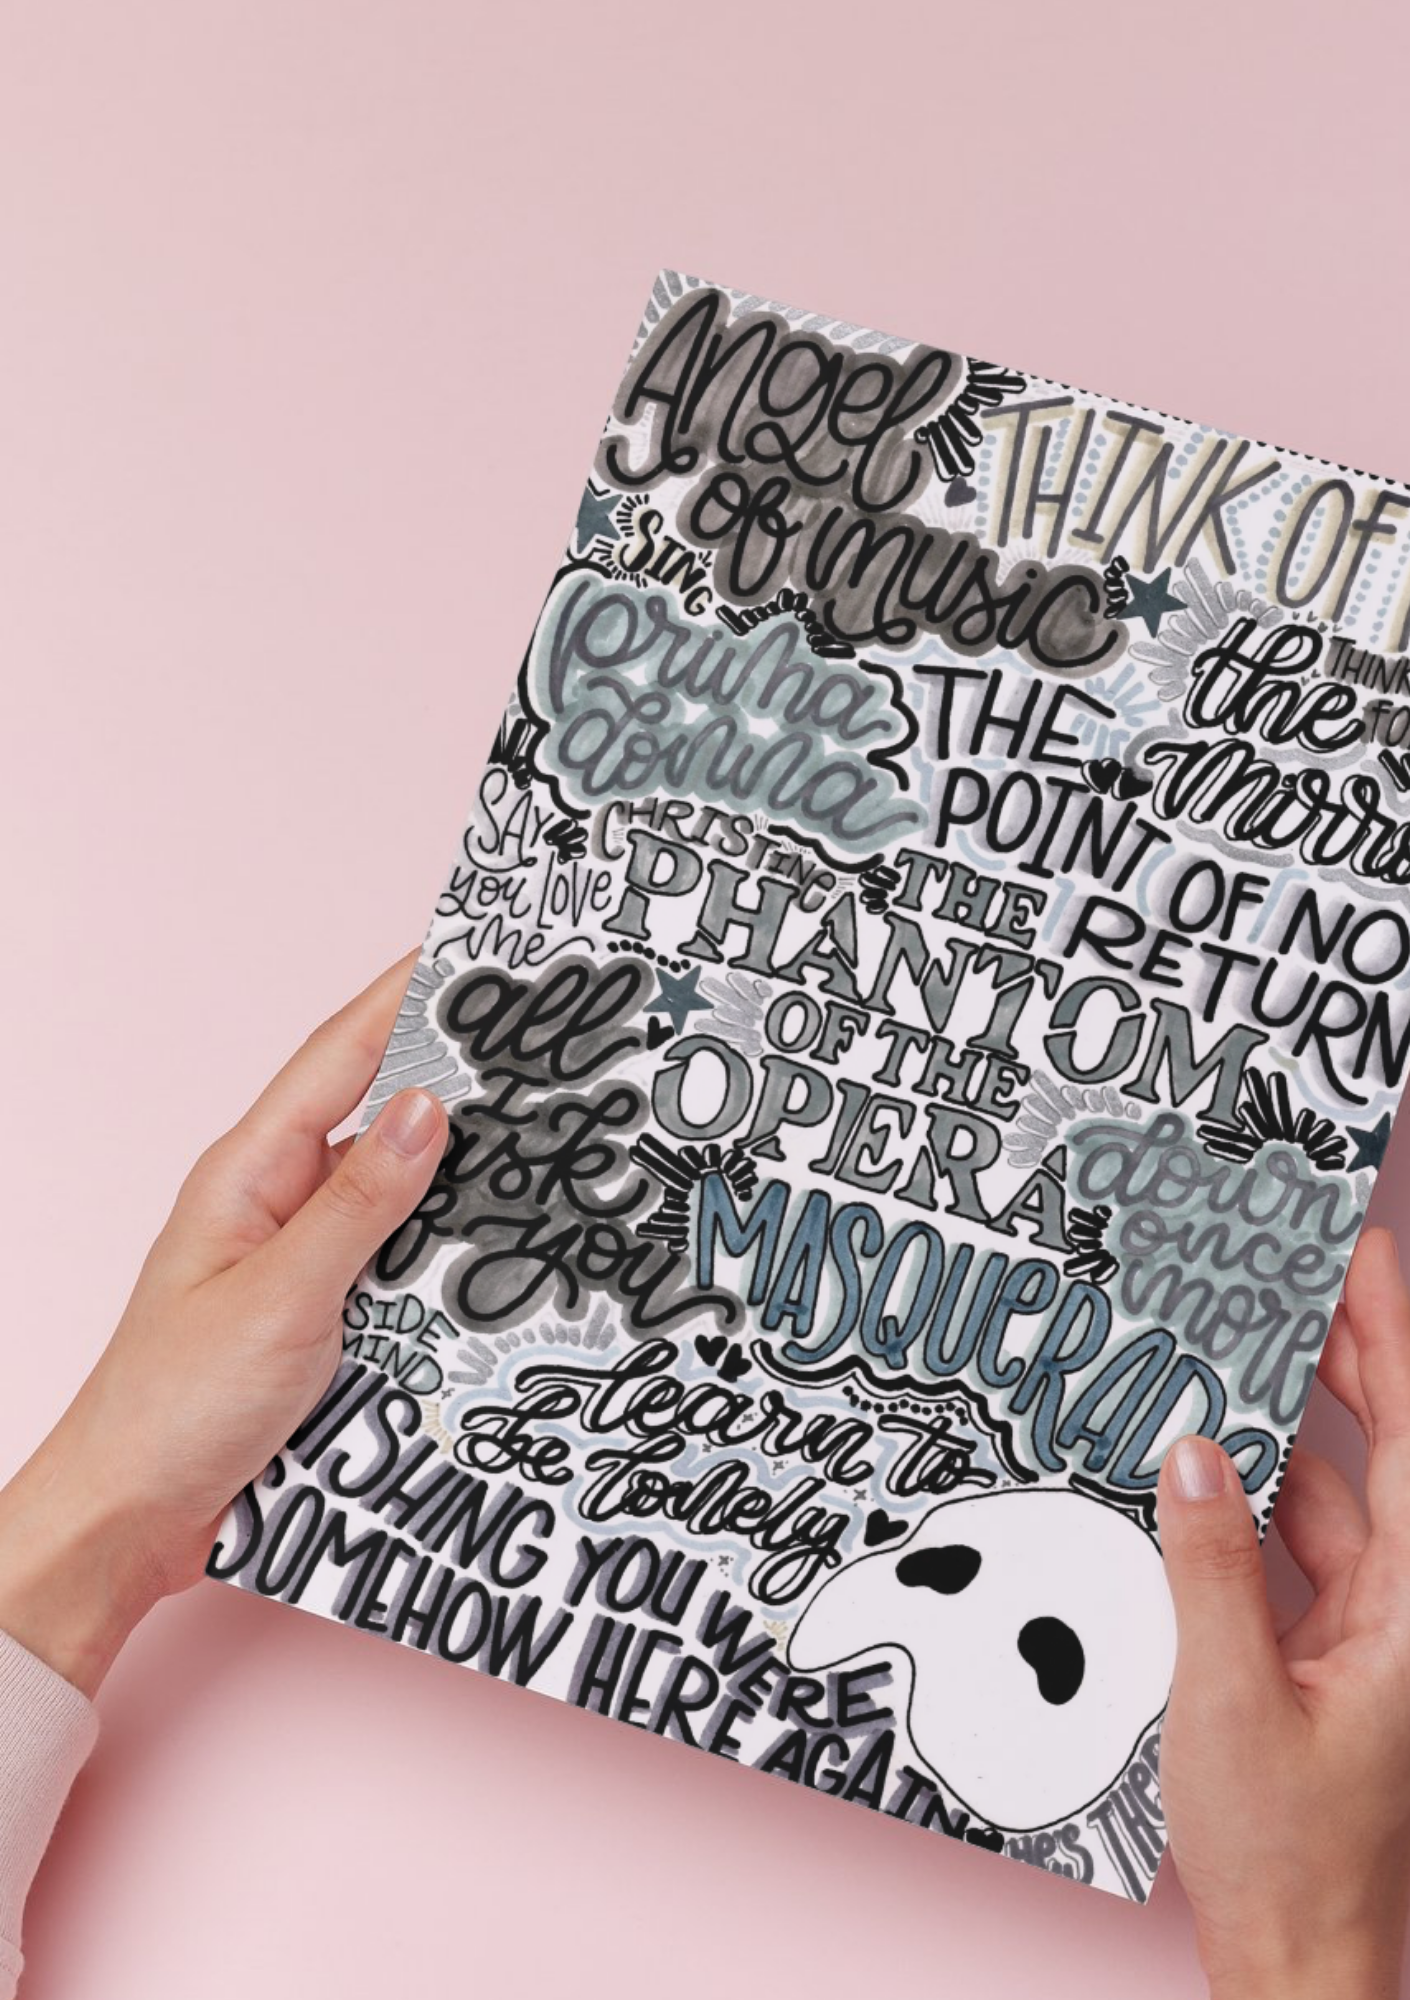 Angel
of music
THINK OF
SING
prima
donna
the
mirro
THINK
THE
POINT OF NO
RETURN
SAY
you love
me
CHRISTINE
THE
PHANTOM
OF THE
OPERA
all
I
ask
of you
down
once
more
MASQUERADE
SIDE
MIND
learn to
be lonely
WISHING YOU WERE
SOMEHOW HERE AGAIN
He's THERE